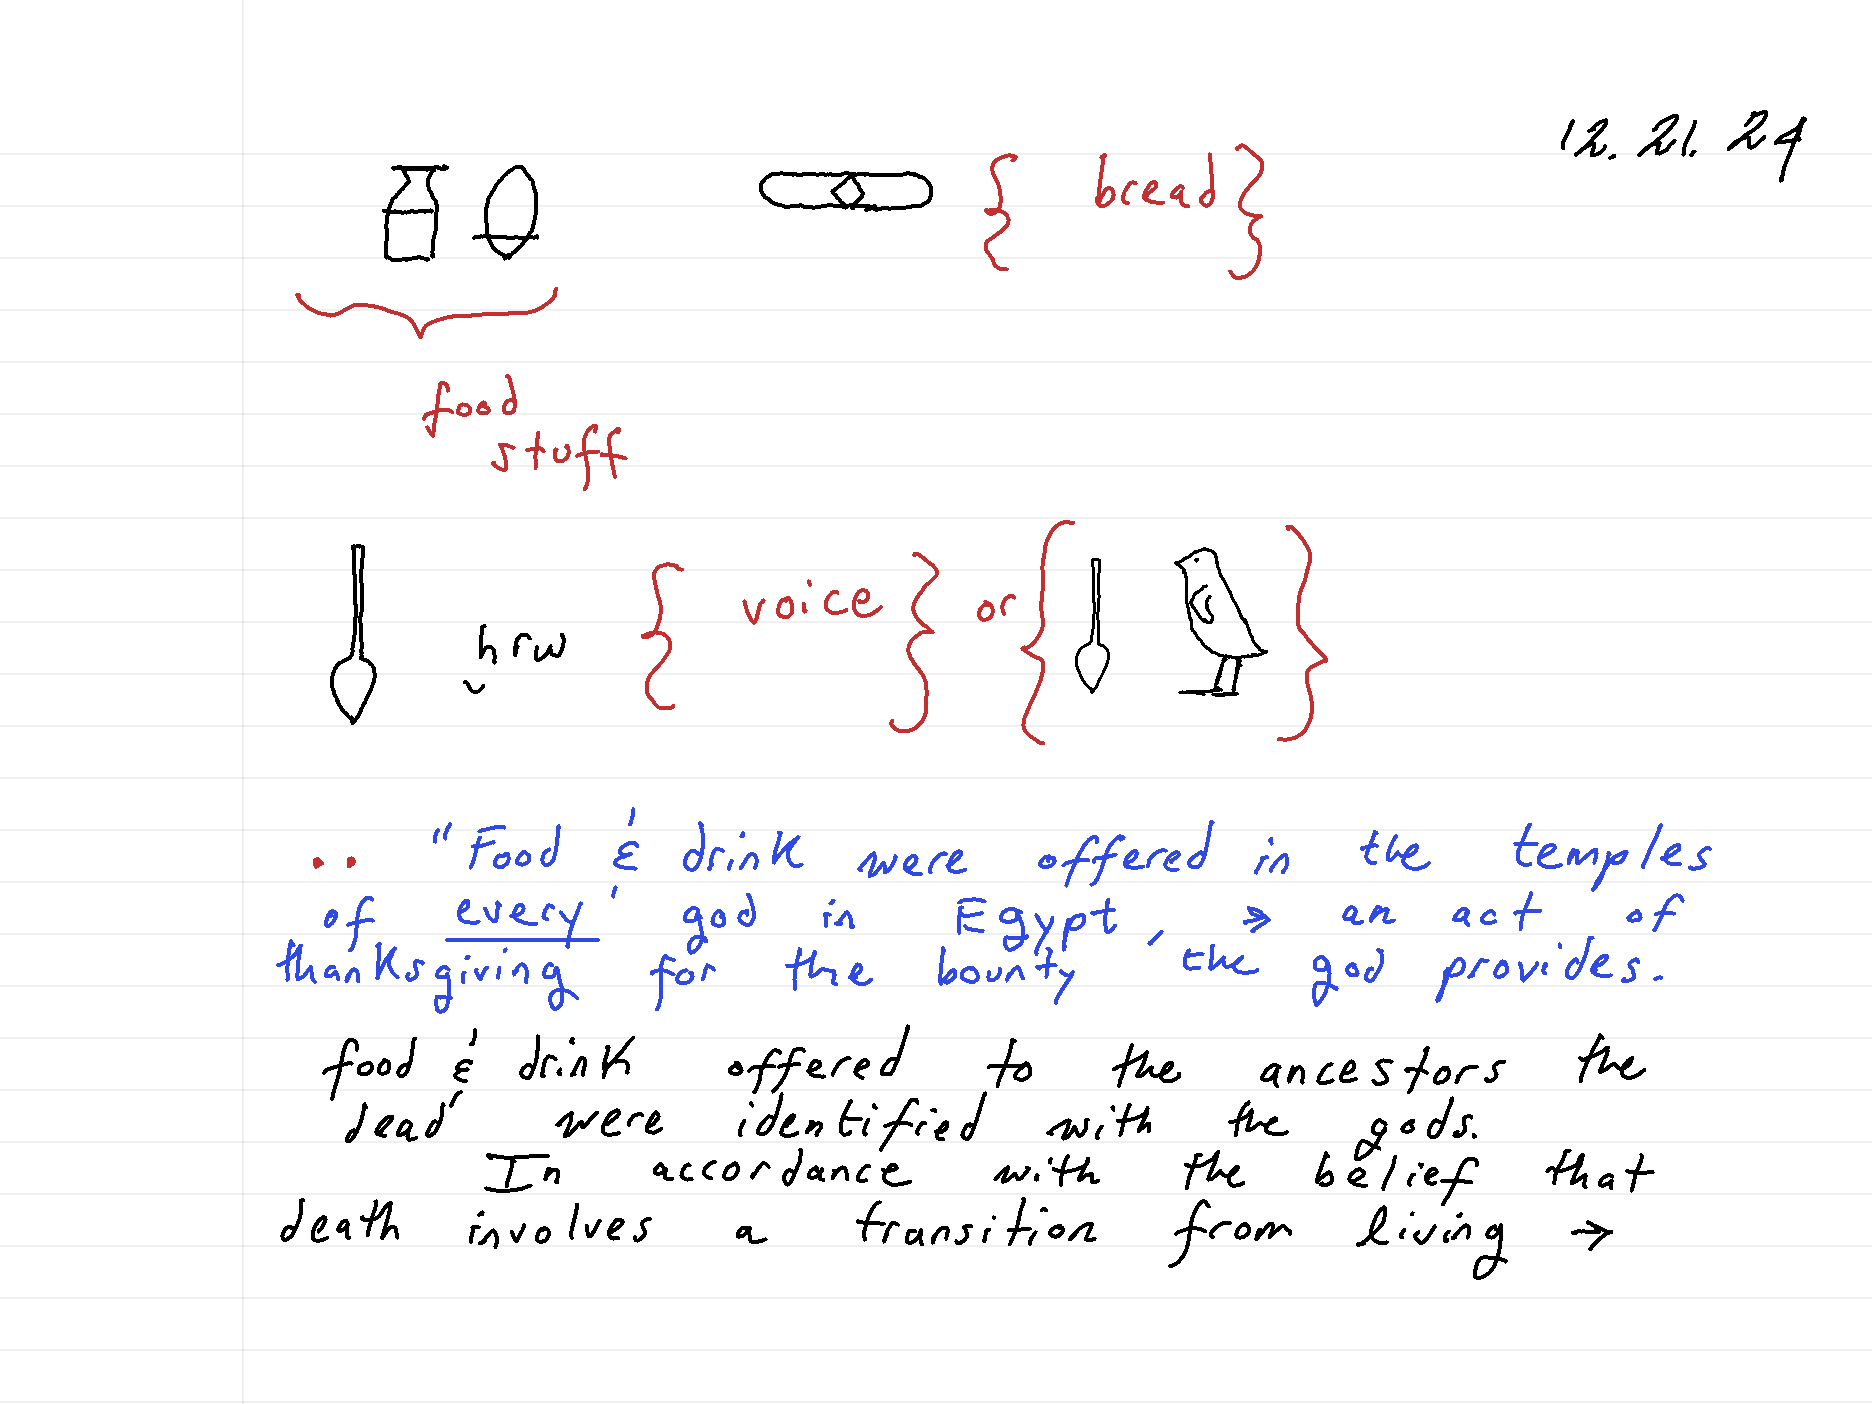 12. 21. 24
{ bread }
food
stuff
ḫrw { voice } or { }
.. "Food & drink were offered in the temples
of every god in Egypt, → an act of
thanksgiving for the bounty the god provides.
food & drink offered to the ancestors the
dead were identified with the gods.
In accordance with the belief that
death involves a transition from living →